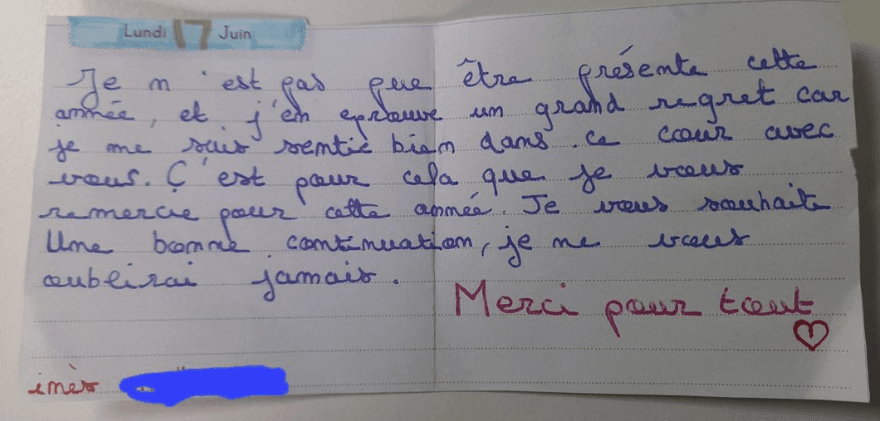 Lundi 17 Juin
Je n'est pas que être présente cette
année, et j'en eprouve un grand regret car
je me suis sentie bien dans ce cour avec
vous. Ç'est pour cela que je vous
remercie pour cette année. Je vous souhaite
Une bonne continuation, je ne vous
oublirai jamais.
Merci pour tout
♡
inès